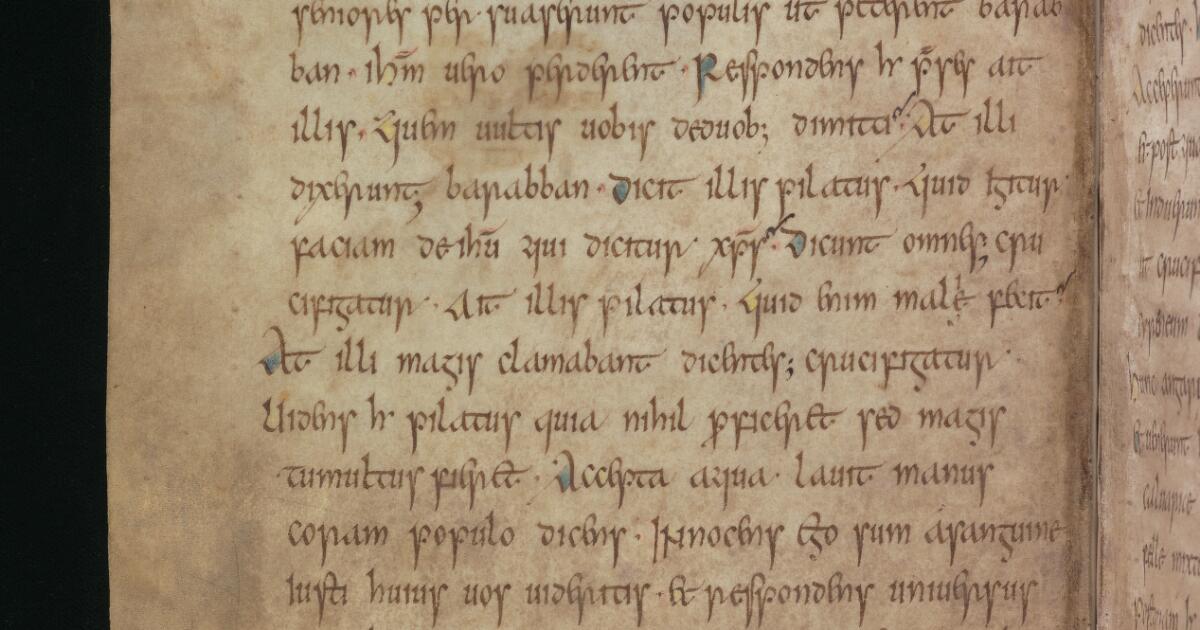 seniores persuaserunt populis ut peterent barab
ban · ih̅m uero perderent · Respondens h̅ p̅ses ait
illis · Quem uultis uobis deduob; dimitti At illi
dixerunt; barabban · Dicit illis pilatus · Quid igitur
faciam de ih̅u qui dicitur xp̅s Dicunt omnes; cru
cifigatur · Ait illis pilatus · Quid enim male fecit
At illi magis clamabant dicentes; crucifigatur ·
Uidens h̅ pilatus quia nihil ꝓficeret sed magis
tumultus fieret · Accepta aqua · lauit manus
coram populo dicens · Innocens ego sum asanguine
iusti huius uos uideritis · et respondens uniuersus
dicentes
Acceperunt